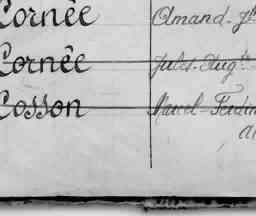 Cornée Amand-J
Cornée Jules-Aug
Cosson Marcel-Ferdin